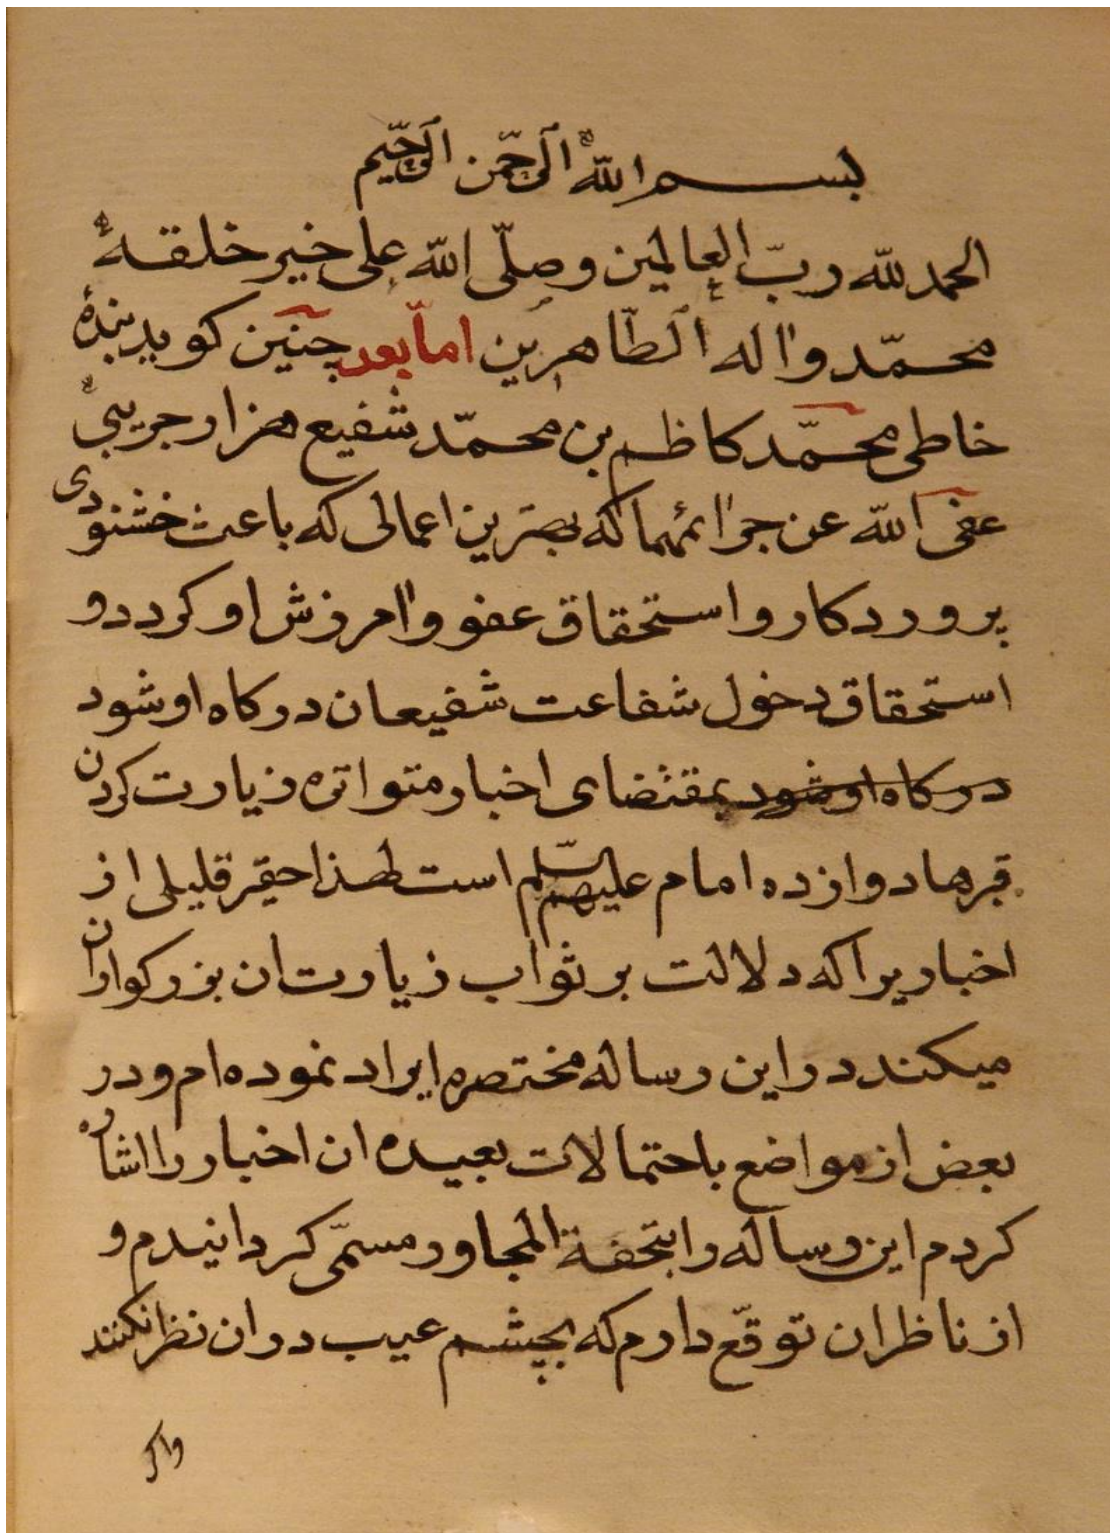 بسم الله الرّحمن الرّحیم
الحمد لله ربّ العالمین وصلّی الله علی خیر خلقه
محمّد واله الطّاهرین امّا بعد چنین کوید بندۀ
خاطی محمّد کاظم بن محمّد شفیع هزارجریبی
عفی الله عن جرائمهما که بهترین اعمالی که باعث خشنودی
پروردکار و استحقاق عفو و امرزش او کردد و
استحقاق دخول شفاعت شفیعان درکاه او شود
درکاه او شود بمقتضای اخبار متواتره زیارت کردن
قبرها دوازده امام علیهم السّلم است لهذا احقر قلیلی از
اخباریرا که دلالت بر ثواب زیارت ان بزرکواران
میکنند در این رساله مختصره ایراد نموده ام و در
بعض از مواضع باحتمالات بعیده ان اخبار را اشاره
کردم این رساله را بتحفة المجاور مسمّی کردانیدم و
از ناظران توقّع دارم که بچشم عیب در ان نظر نکنند
واکر